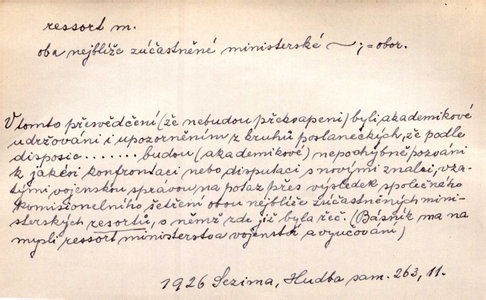 ressort m.
oba nejblíže zúčastněné ministerské ~; = obor.
V tomto přesvědčení (že nebudou překvapeni) byli akademikové
udržováni i upozorněním z kruhů poslaneckých, že podle
disposic....... budou (akademikové) nepochybně pozváni
k jakési konfrontaci nebo disputaci s novými znalci, vza-
tými vojenskou správou, na potaz přes výsledek společného
komisionelního šetření obou nejblíže zúčastněných mini-
sterských resortů, o němž zde již byla řeč. (Básník má na
mysli ressort ministerstva vojenství a vyučování)
1926 Sezima, Hudba sam. 263, 11.